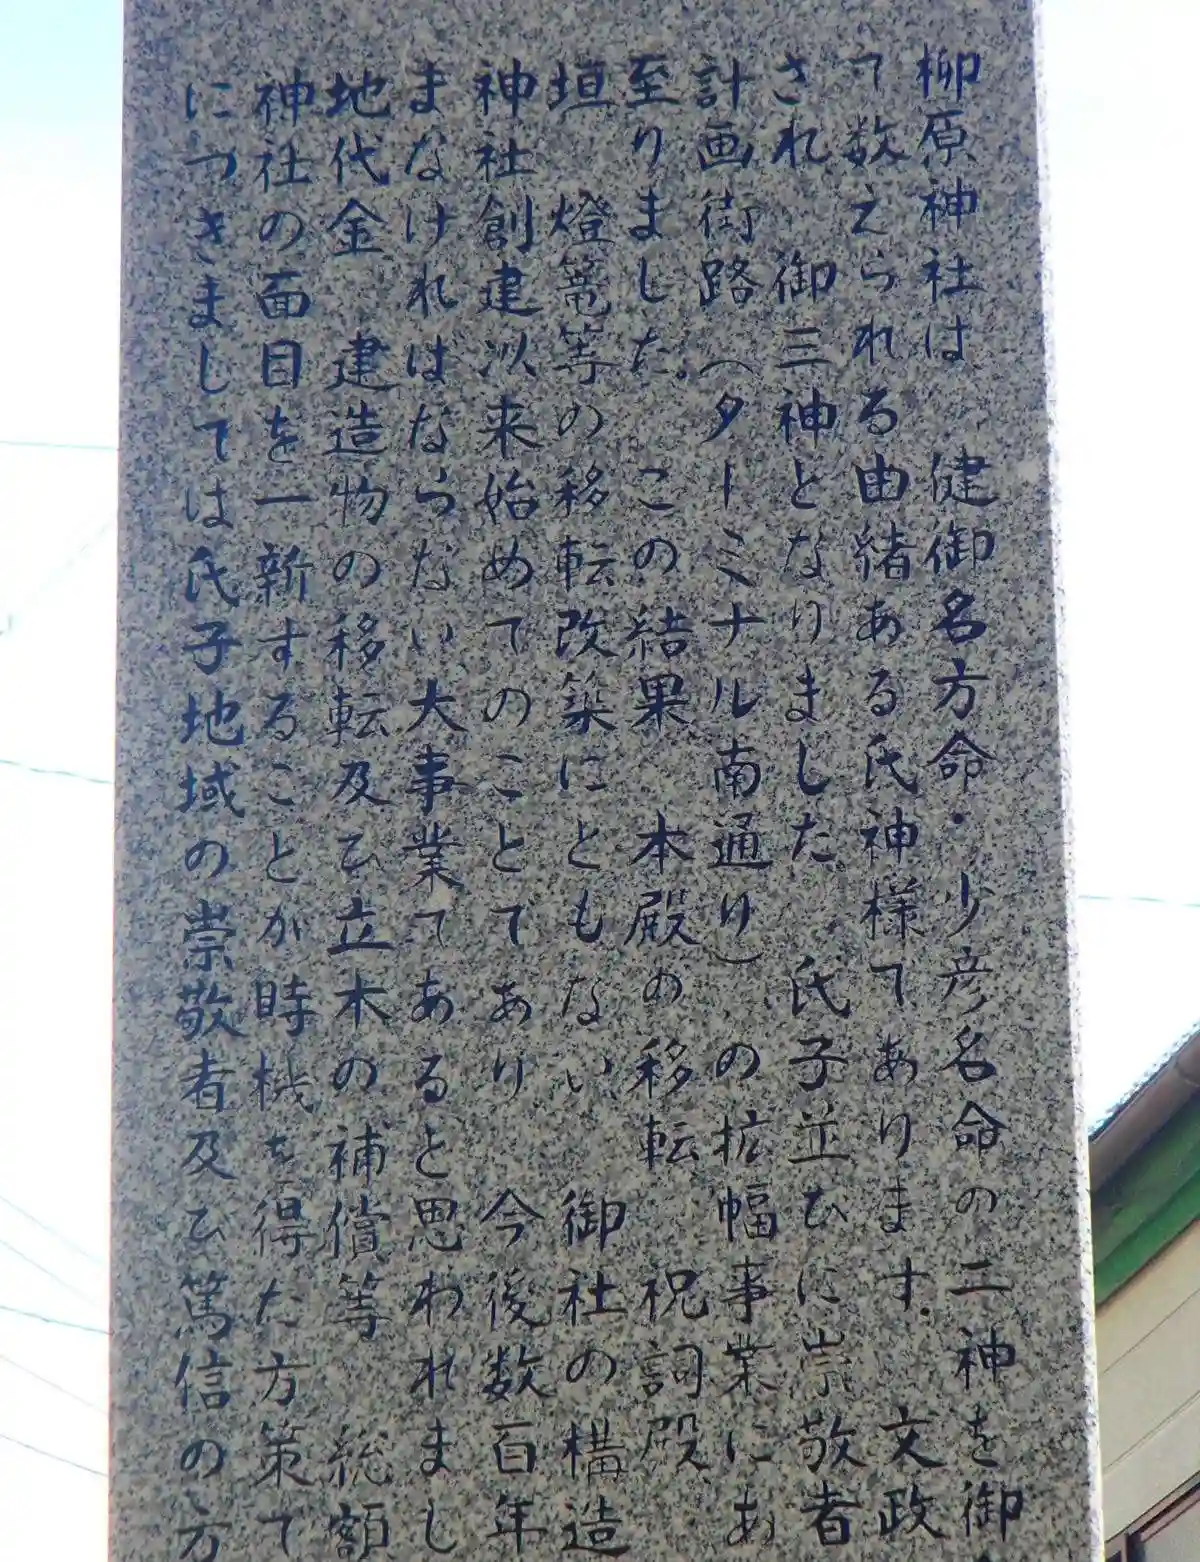 柳原神社は 健御名方命・少彦名命の二神を御
て数えられる由緒ある氏神様てあります。 文政
され 御三神となりました 氏子並ひに崇敬者
計画街路（ターミナル南通り）の拡幅事業にあ
至りました。 この結果 本殿の移転 祝詞殿
垣 燈篭等の移転改築にともない 御社の構造
神社創建以来始めてのことてあり 今後数百年
まなけれはならない大事業てあると思われまし
地代金 建造物の移転及ひ立木の補償等 総額
神社の面目を一新することが時機を得た方策て
につきましては氏子地域の崇敬者及ひ篤信の方